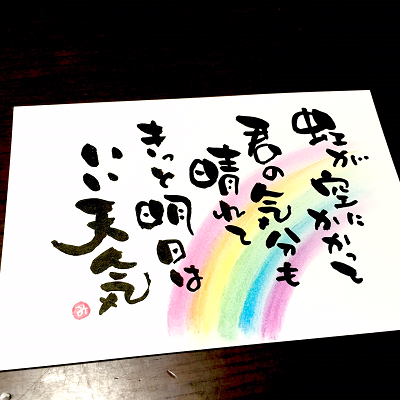 虹が空にかかって
君の気分も
晴れて
きっと明日は
いい天気
み